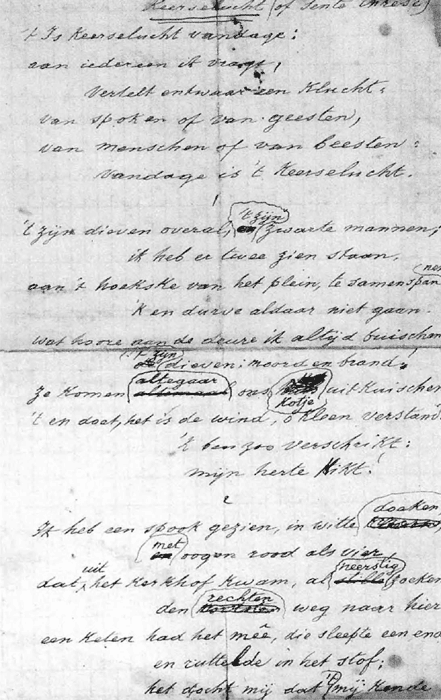 Keerselucht (of Sente Andries)
't Is Keerselucht vandage:
aan iedereen ik vrage,
vertelt entwaar een klucht:
van spoken of van geesten,
van menschen of van beesten:
vandage is 't Keerselucht.
1
't zijn dieven overal, 't zijn zwarte mannen;
ik heb er twee zien staan,
aan 't hoekske van het plein, te samenspannen
'k en durve aldaar niet gaan.
Wat hoore aan de deure ik altijd buischen
't zijn dieven: moord en brand!
Ze komen altegaar ons kotje uitkuischen
't en doet, het is de wind, o kleen verstand
't ben zoo verschrikt:
mijn herte hikt!
2
Ik heb een spook gezien, in witte doeken
met oogen rood als vier,
dat uit het Kerkhof kwam, al neerstig zoeken
den rechten weg naar hier
een keten had het mêe, die sleepte een end
en ruttelde in het stof;
het docht mij dat 't mij kende